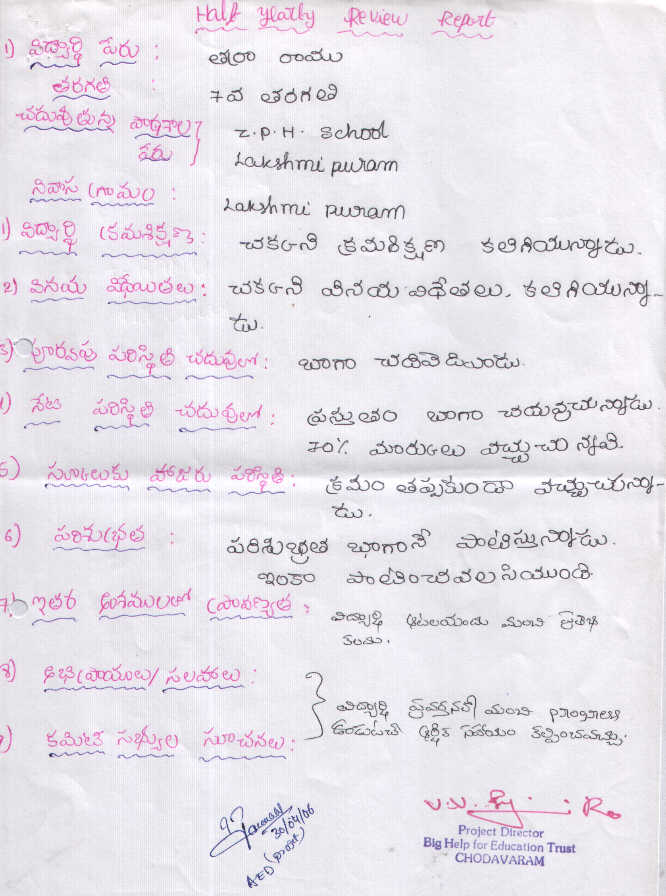 Half yearly Review Report
1) విద్యార్థి పేరు : తలా రాము
తరగతి : 7వ తరగతి
చదువుతున్న పాఠశాల పేరు } Z.P.H. School
Lakshmi puram
నివాస గ్రామం : Lakshmi puram
1) విద్యార్థి క్రమశిక్షణ : చక్కని క్రమశిక్షణ కలిగియున్నాడు.
2) వినయ విధేయతలు : చక్కని వినయ విధేతలు. కలిగియున్నా-
డు.
3) పూర్వపు పరిస్థితి చదువులో : బాగా చదివెడివాడు.
4) నేటి పరిస్థితి చదువులో : ప్రస్తుతం బాగా చదువుచున్నాడు.
70% మార్కులు వచ్చుచున్నవి.
5) స్కూలుకు హాజరు పరిస్థితి : క్రమం తప్పకుండా వచ్చుచున్నా-
డు.
6) పరిశుభ్రత : పరిశుభ్రత బాగానే పాటిస్తున్నాడు.
ఇంకా పాటించవలసియుంది
7) ఇతర అంశములలో ప్రావీణ్యత : విద్యార్థి ఆటలయందు మంచి ప్రతిభ
కలదు.
8) అభిప్రాయులు/ సలహాలు :
విద్యార్థి ప్రవర్తనలో మంచి progress
9) కమిటి సభ్యుల సూచనలు : ఉండుటచే ఆర్థిక సహాయం కల్పించవచ్చు.
30/04/06
AEO
Project Director
Big Help for Education Trust
CHODAVARAM